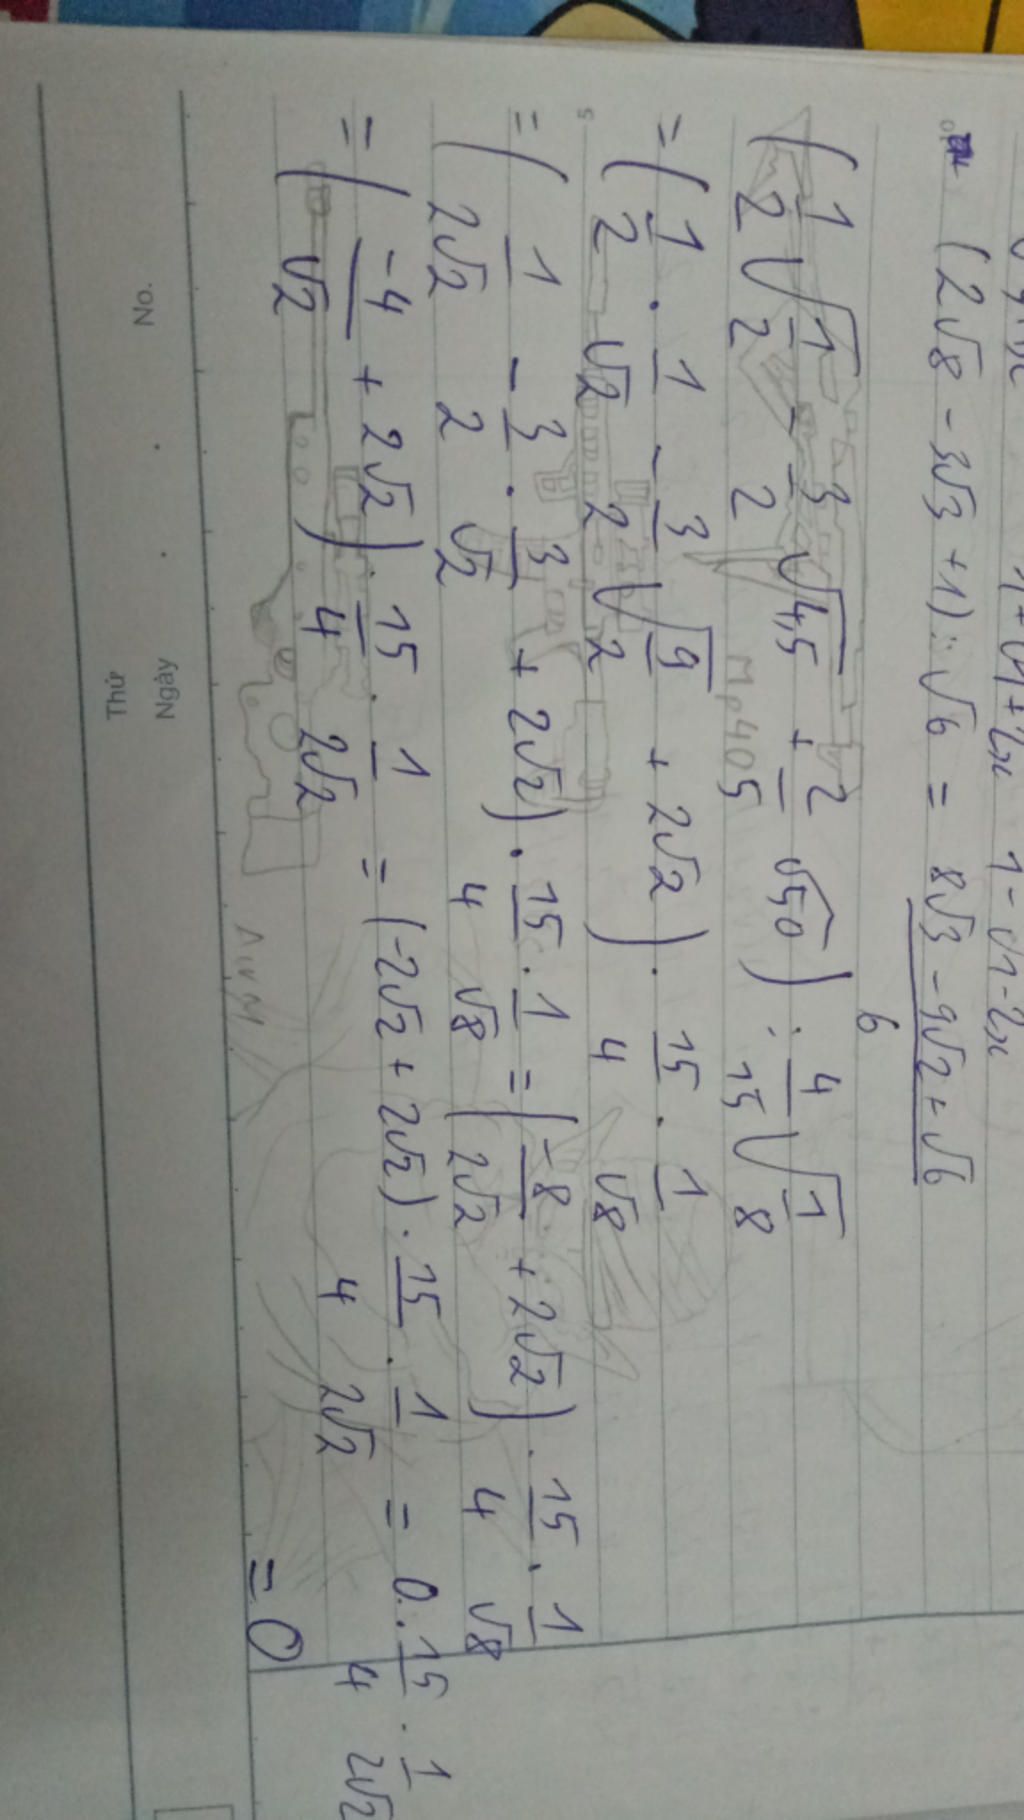 1 - √1-2x
(2√8 - 3√3 + 1) : √6 = (8√3 - 9√2 + √6)/6
(1/2 √(1/2) - 3/2 √4,5 + 2/5 √50) : 4/15 √(1/8)
= (1/2 . 1/√2 - 3/2 √(9/2) + 2√2) . 15/4 . 1/√8
= (1/2√2 - 3/2 . 3/√2 + 2√2) . 15/4 . 1/√8 = (-8/2√2 + 2√2) . 15/4 . 1/√8
= (-4/√2 + 2√2) . 15/4 . 1/2√2 = (-2√2 + 2√2) . 15/4 . 1/2√2 = 0 . 15/4 . 1/2√2
= 0
Thứ
Ngày
No.